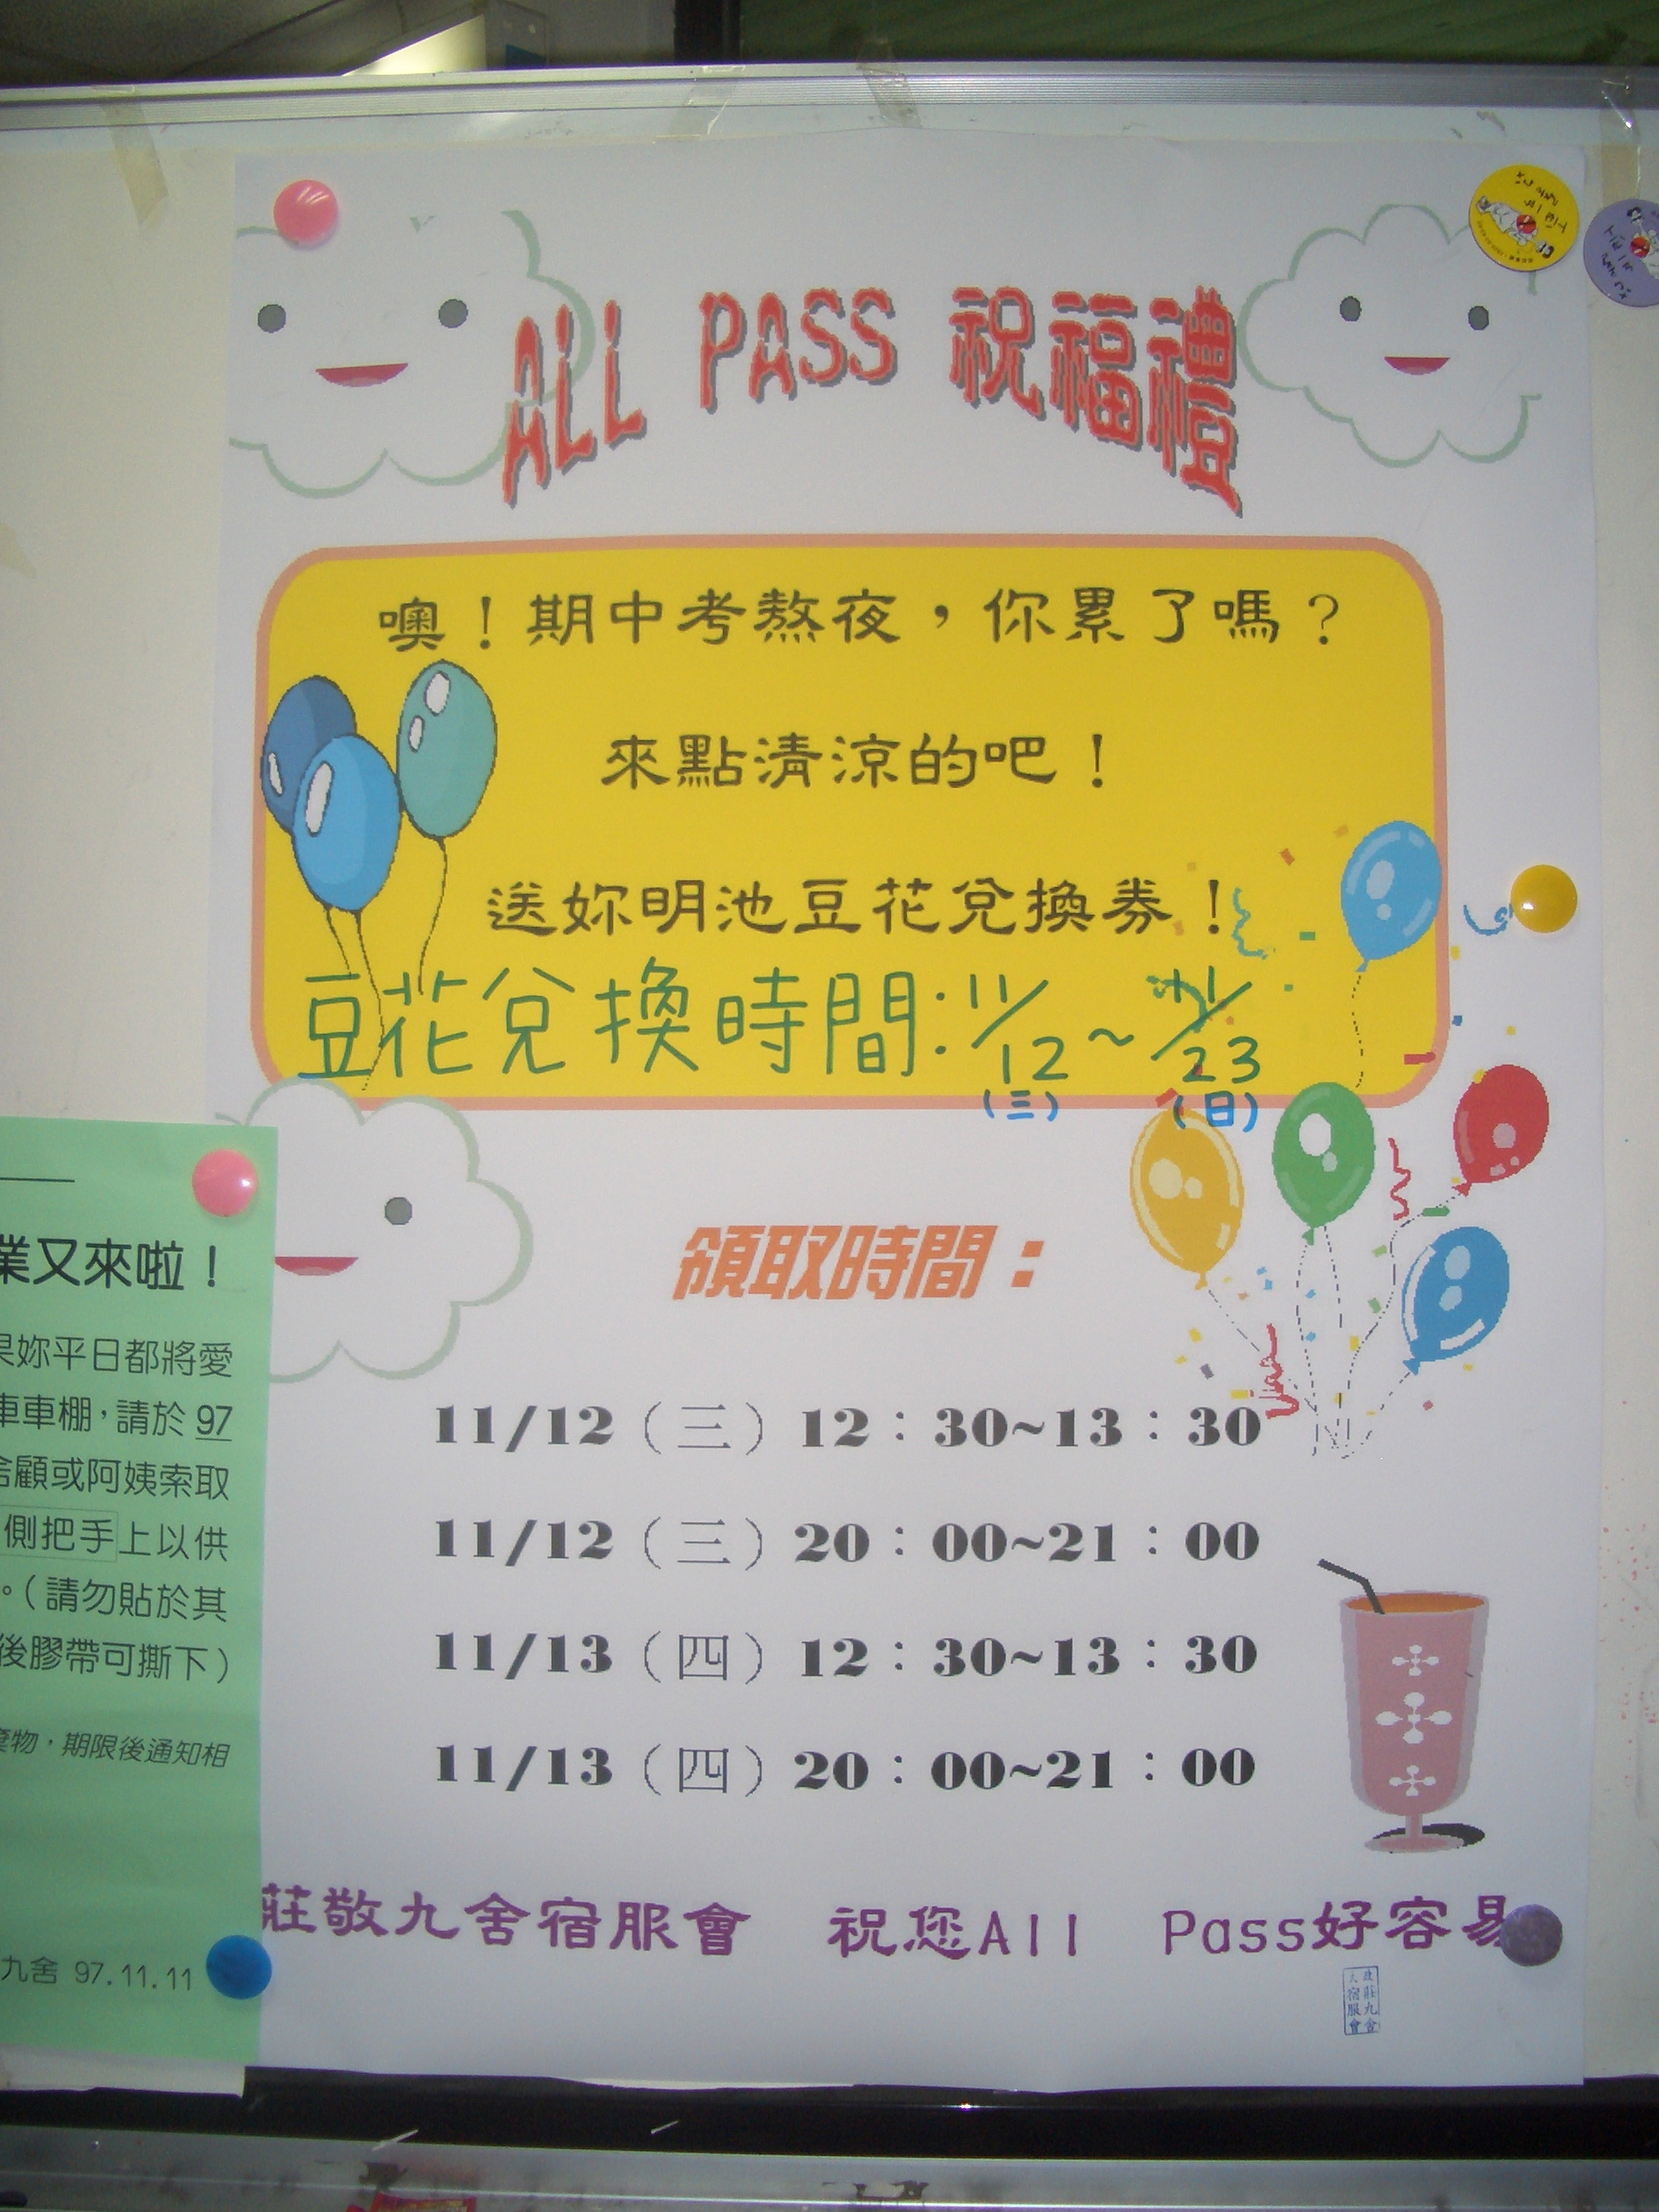 ALL PASS 祝福禮
噢！期中考熬夜，你累了嗎？
來點清涼的吧！
送妳明池豆花兌換券！
豆花兌換時間:11/12~11/23
(三) (日)
領取時間：
11/12（三）12：30~13：30
11/12（三）20：00~21：00
11/13（四）12：30~13：30
11/13（四）20：00~21：00
莊敬九舍宿服會 祝您All Pass好容易
莊九舍
宿服會
業又來啦！
果妳平日都將愛
車車棚，請於 97
舍顧或阿姨索取
側把手上以供
。(請勿貼於其
後膠帶可撕下)
棄物，期限後通知相
九舍 97.11.11